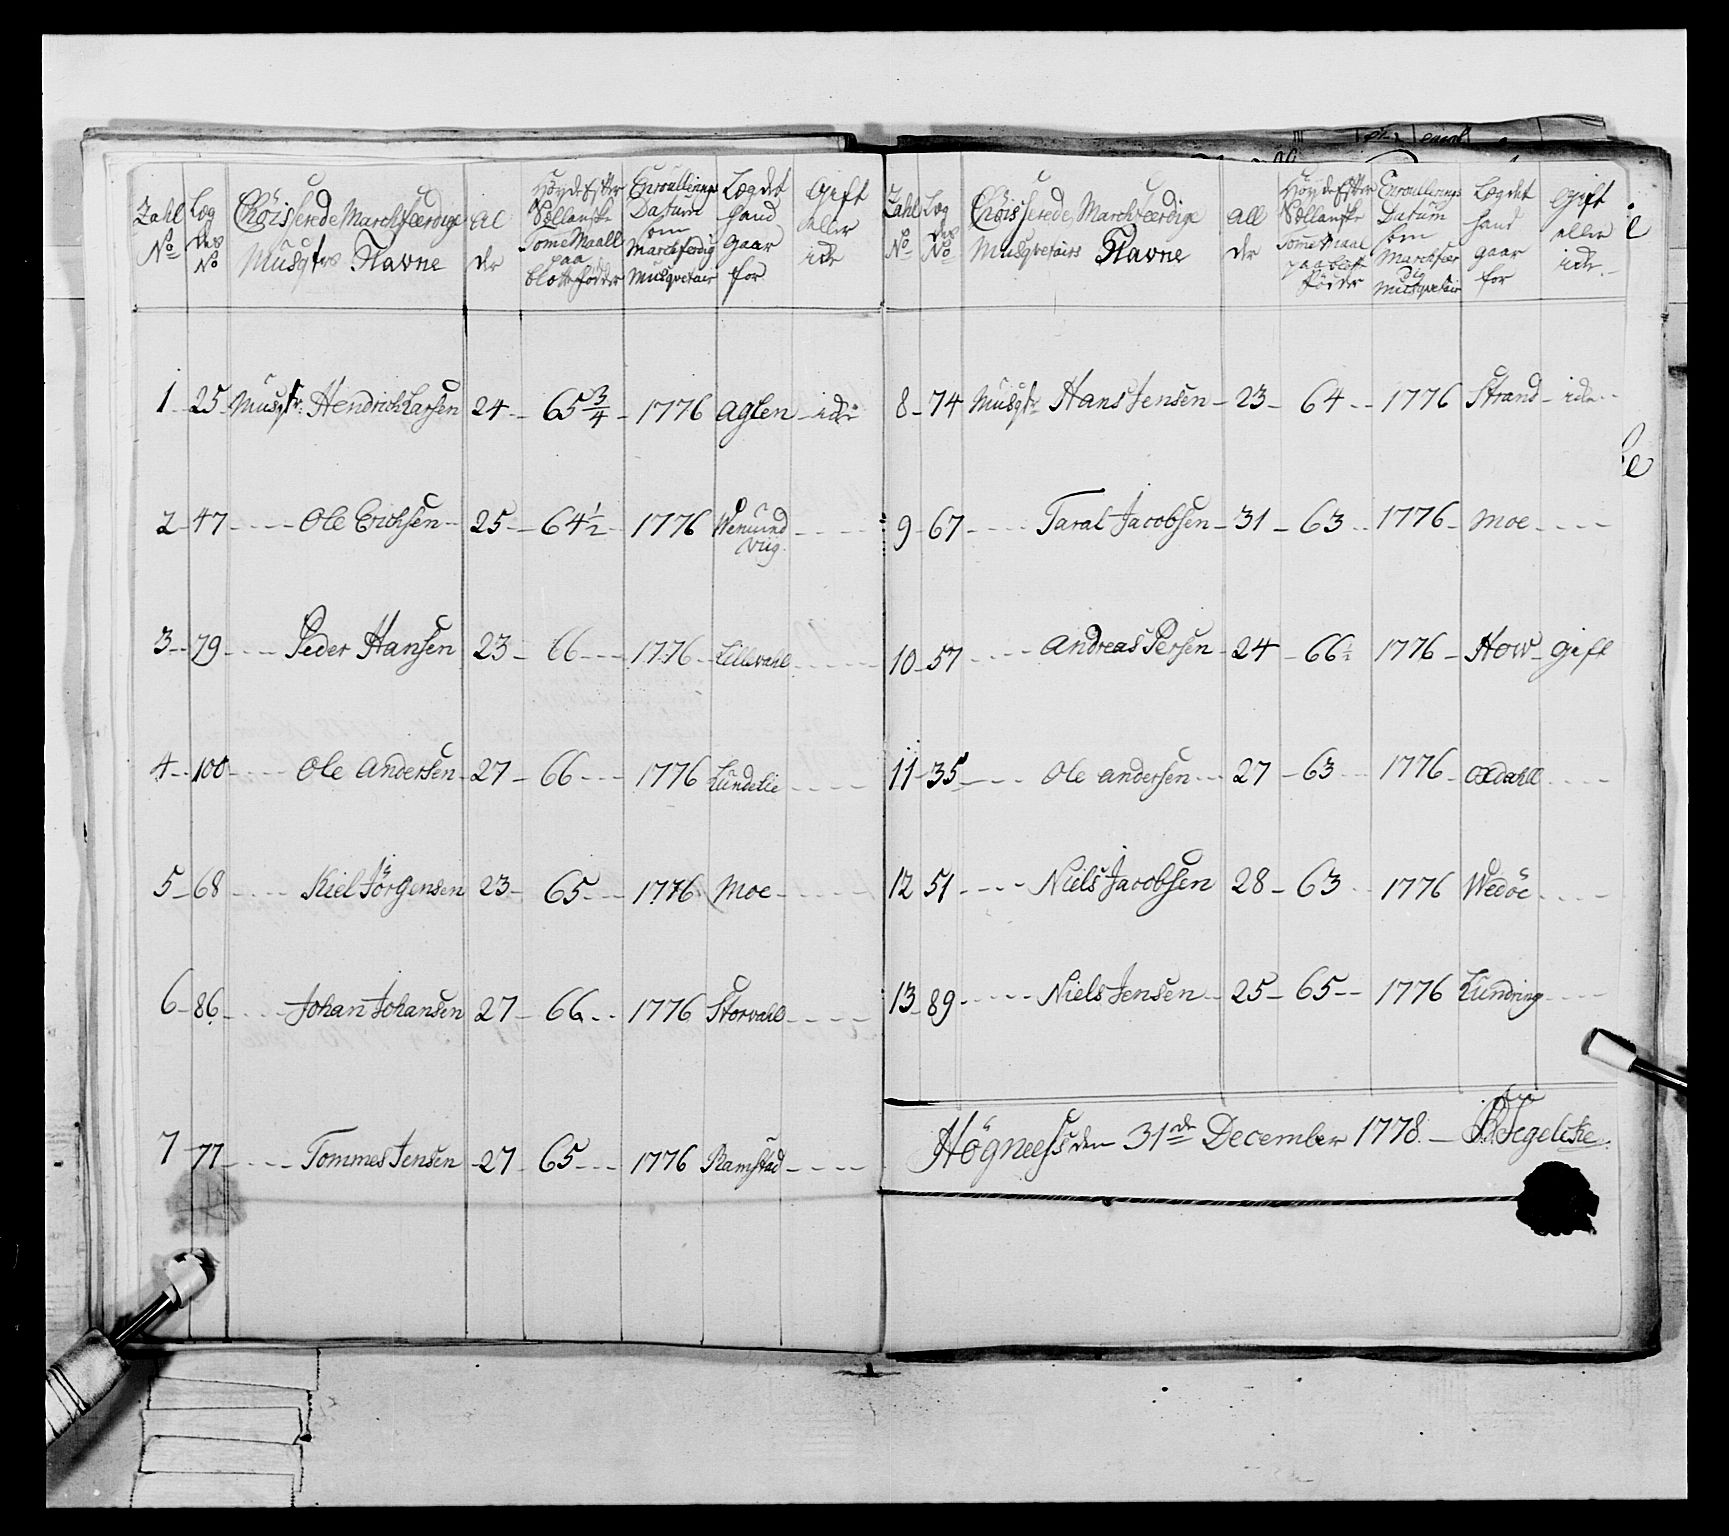 Zahl No | Læg des No | Choisserede Marchfærdige Musqtrs Navne | Al der | Höyde Efter Sællanske Tome Maall paa blotte födder | Enroullerings Datum som Marchfærdig Musqvetair | Lægdet hand gaar for | Gift eller icke
1 25 Musqtr. Hendrich Larsen 24 65 3/4 1776 Aglen icke
2 47 Ole Erichsen 25 64 1/2 1776 Wemund Viig
3 79 Peder Hansen 23 66 1776 Lillevahl
4 100 Ole Andersen 27 66 1776 Lundelie
5 68 Kiel Jörgensen 23 65 1776 Moe
6 86 Johan Johansen 27 66 1776 Storvahl
7 77 Tommes Jensen 27 65 1776 Ramstad
Zahl No | Læg des No | Choisserede Marchfærdige Musqvetairs Navne | All der | Höyde Efter Sællanske Tome Maal paa blotte Födder | Enroullerings Datum som Marchfær dig Musqvetair | Lægdet hand gaar for | Gift eller icke
8 74 Musqtr Hans Jensen 23 64 1776 Strand icke
9 67 Taral Jacobsen 31 63 1776 Moe
10 57 Andreas Persen 24 66 1/2 1776 How gift
11 35 Ole Andersen 27 63 1776 Oxdahl
12 51 Niels Jacobsen 28 63 1776 Wedöe
13 89 Niels Jensen 25 65 1776 Lundring
Högnees den 31de December 1778 Tegelcke